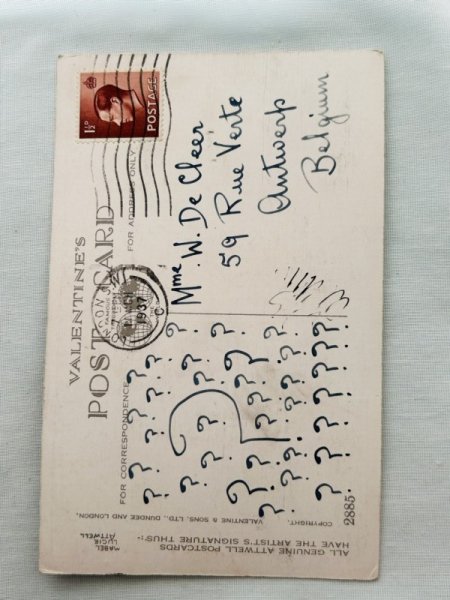 ALL GENUINE ATTWELL POSTCARDS
HAVE THE ARTIST'S SIGNATURE THUS:-
MABEL
LUCIE
ATTWELL
VALENTINE'S
POST CARD
FOR CORRESPONDENCE
FOR ADDRESS ONLY.
POSTAGE
1½D
LONDON
1937
C
COPYRIGHT.
VALENTINE & SONS, LTD., DUNDEE AND LONDON.
2885.
? ? ? ? ? ?
? ? ? ? ? ?
? ? ? ? ? ?
? ? ? ? ? ?
? ? ? ? ? ?
? ? ? ? ? ?
Mme W. De Cleer
59 Rue Verte
Antwerp
Belgium